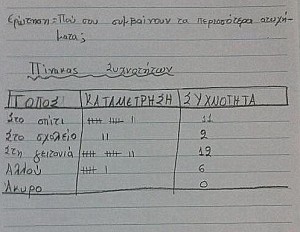 Ερώτηση: Πού σου συμβαίνουν τα περισσότερα ατυχή-
ματα;
Πίνακας Συχνοτήτων
ΤΟΠΟΣ ΚΑΤΑΜΕΤΡΗΣΗ ΣΥΧΝΟΤΗΤΑ
Στο σπίτι 𝍸 𝍸 | 11
Στο σχολείο || 2
Στη γειτονιά 𝍸 𝍸 || 12
Αλλού 𝍸 | 6
Άκυρο 0